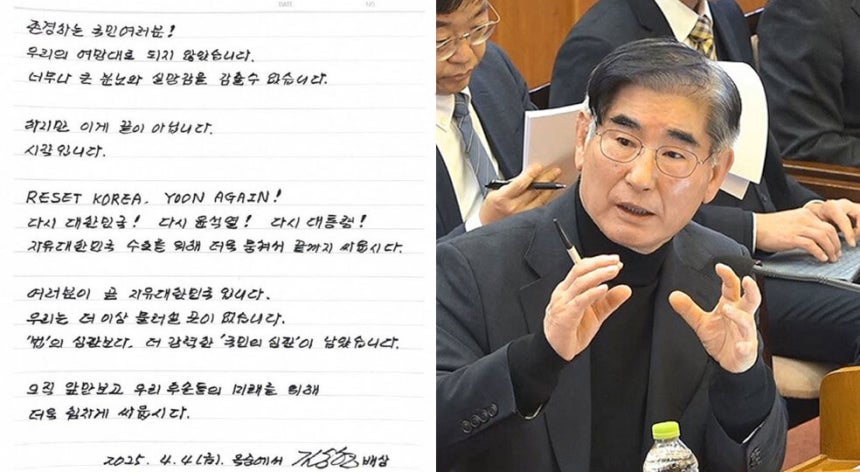 DATE NO
존경하는 국민여러분!
우리의 여망대로 되지 않았습니다.
너무나 큰 분노와 실망감을 감출수 없습니다.
하지만 이게 끝이 아닙니다.
시작입니다.
RESET KOREA. YOON AGAIN!
다시 대한민국! 다시 윤석열! 다시 대통령!
자유대한민국 수호를 위해 더욱 뭉쳐서 끝까지 싸웁시다.
여러분이 곧 자유대한민국 입니다.
우리는 더 이상 물러설 곳이 없습니다.
'법'의 심판보다. 더 강력한 '국민의 심판'이 남았습니다.
오직 앞만보고 우리 후손들의 미래를 위해
더욱 힘차게 싸웁시다.
2025. 4. 4(금). 옥중에서 김용현 배상